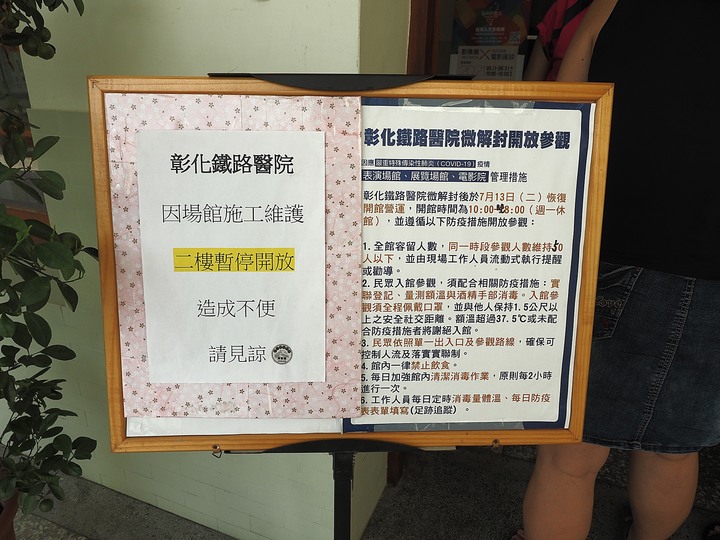 彰化鐵路醫院
因場館施工維護
二樓暫停開放
造成不便
請見諒
彰化鐵路醫院微解封開放參觀
因應 嚴重特殊傳染性肺炎(COVID-19) 疫情
表演場館、展覽場館、電影院 管理措施
彰化鐵路醫院微解封後於7月13日(二)恢復
開館營運,開館時間為10:00-18:00(週一休
館),並遵循以下防疫措施開放參觀:
1. 全館容留人數,同一時段參觀人數維持50
人以下,並由現場工作人員流動式執行提醒
或勸導。
2. 民眾入館參觀,須配合相關防疫措施:實
聯登記、量測額溫與酒精手部消毒。入館參
觀須全程佩戴口罩,並與他人保持1.5公尺以
上之安全社交距離。額溫超過37.5℃或未配
合防疫措施者將謝絕入館。
3. 民眾依照單一出入口及參觀路線,確保可
控制人流及落實實聯制。
4. 館內一律禁止飲食。
5. 每日加強館內清潔消毒作業,原則每2小時
進行一次。
6. 工作人員每日定時消毒量體溫、每日防疫
表表單填寫(足跡追蹤)。